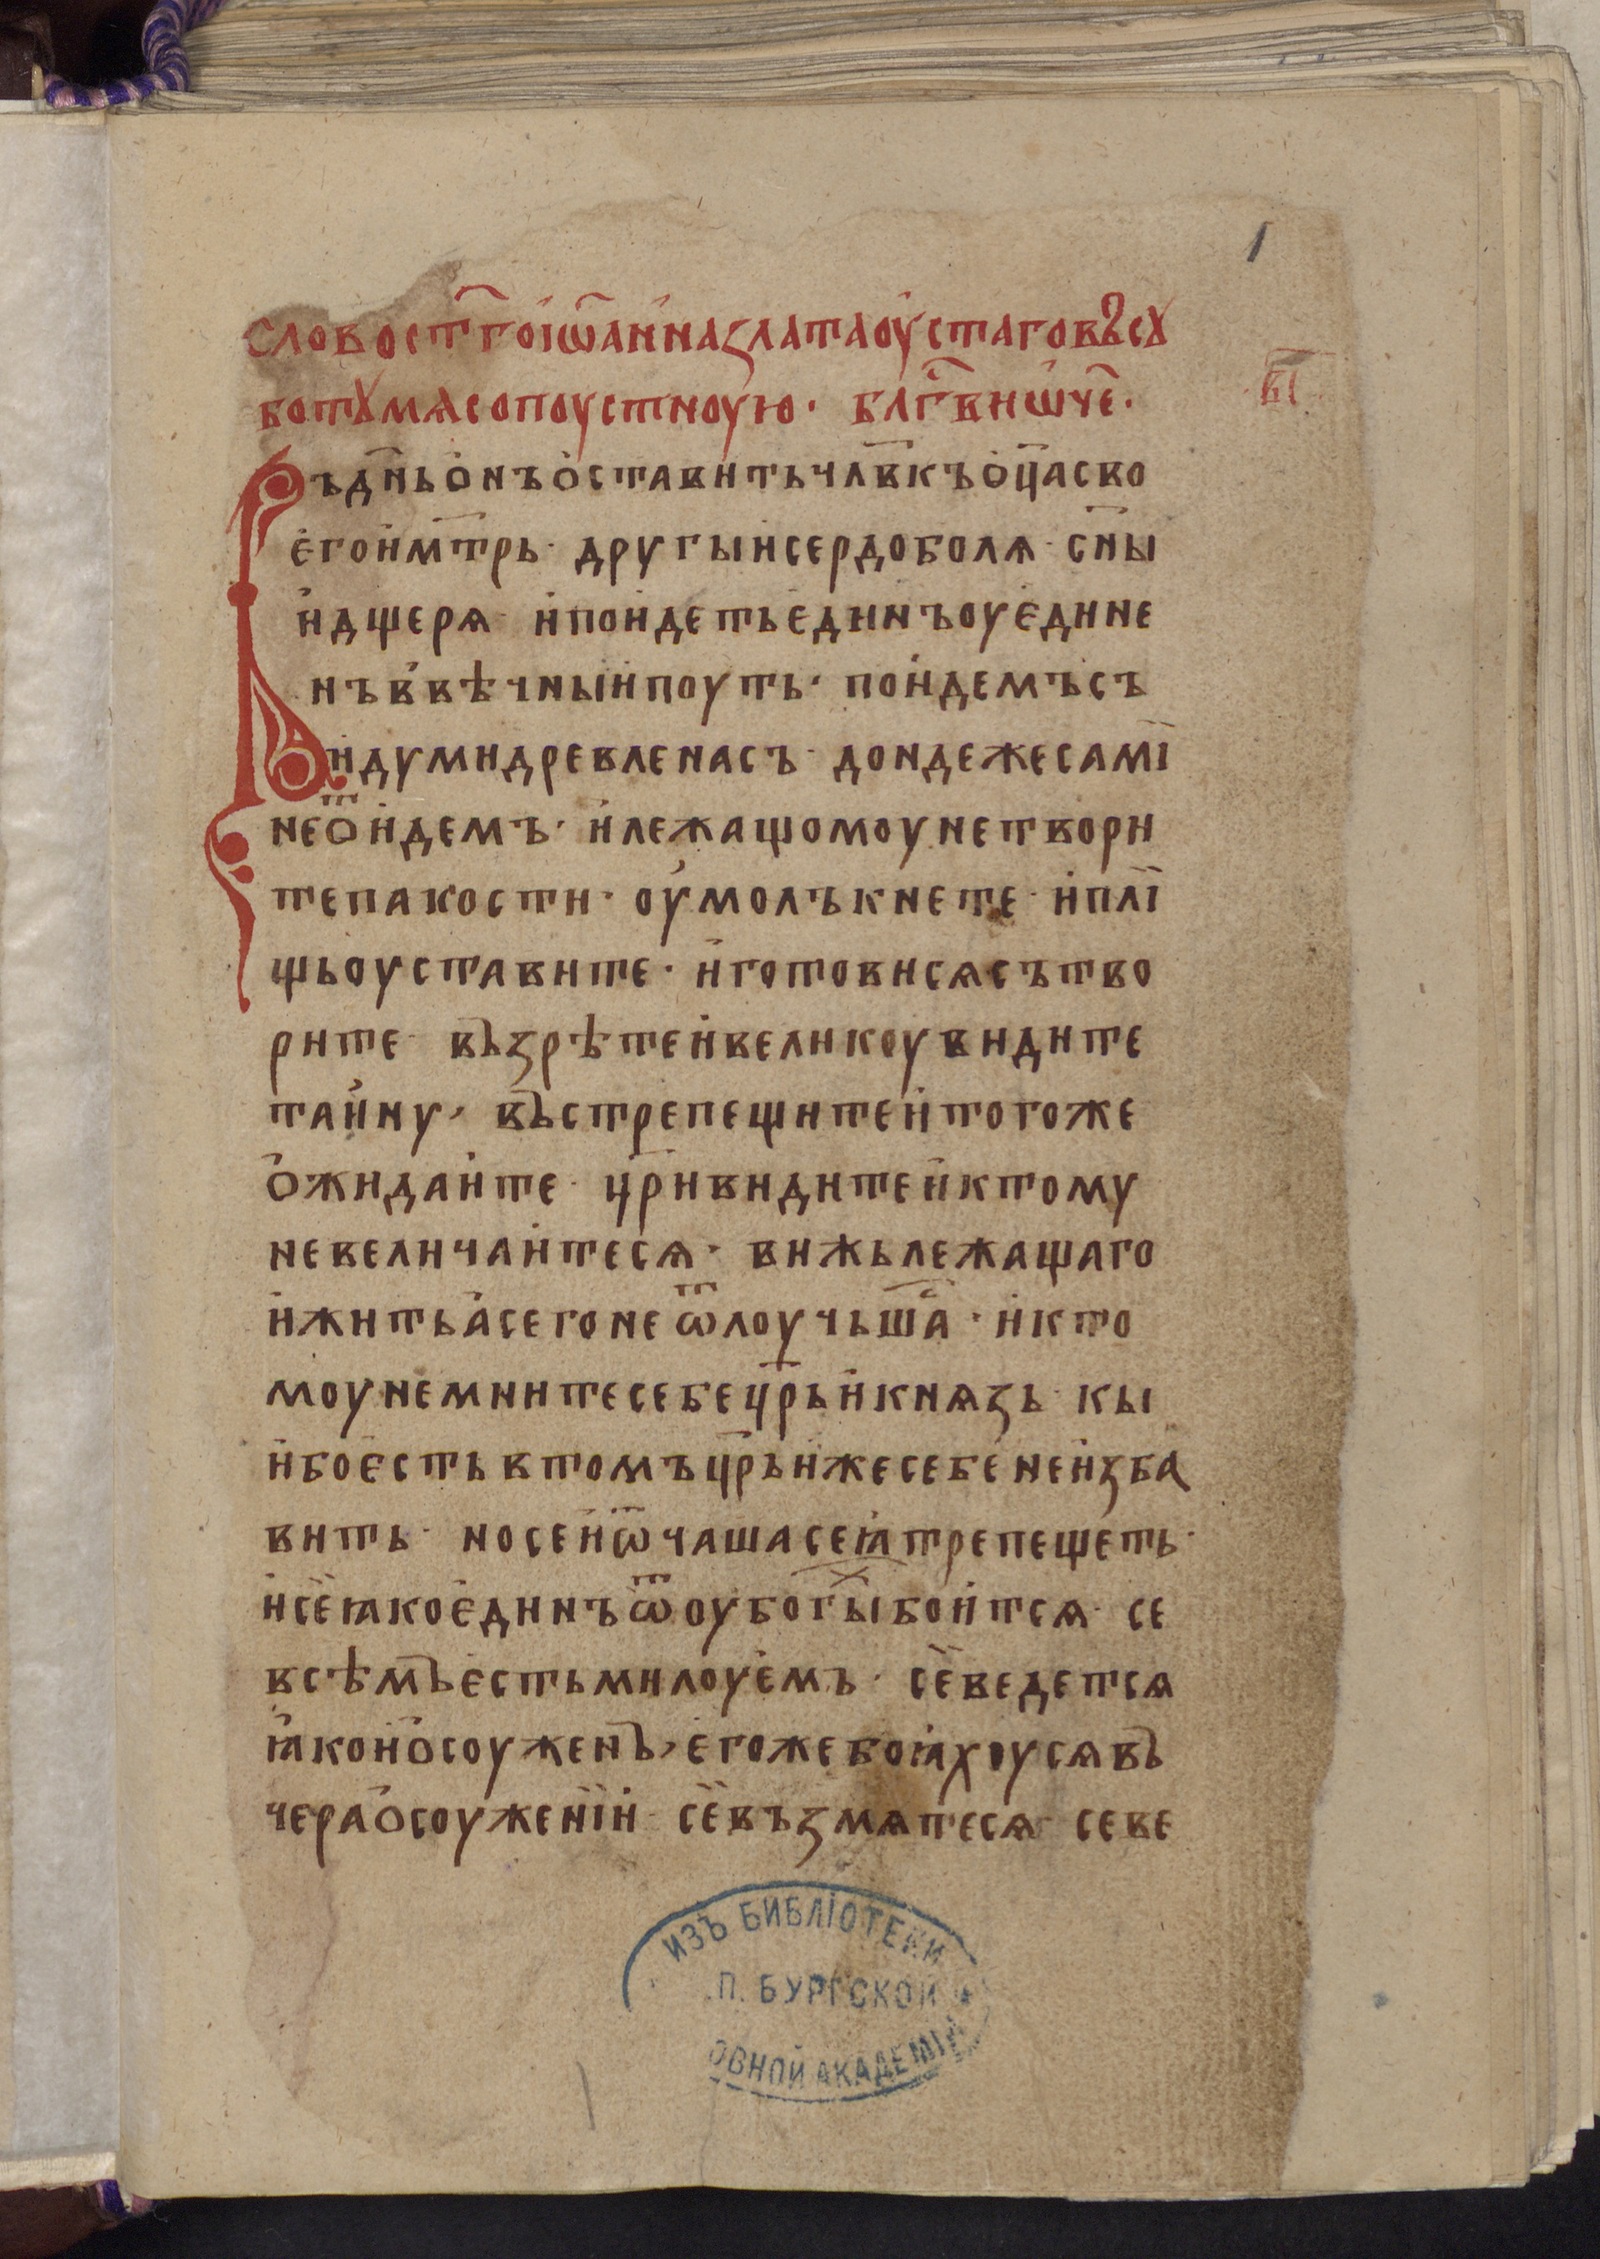 1
словост҃гоіѡ҃аннаꙁлатаоустаговъсꙋ
ботꙋмѧсопоустноую· бл҃гвиѡ҃че·
вı҃
Въдн҃ьонъоставитьчл҃вкъоц҃аско
егоим҃трь· другыисердоболѧ· сн҃ы
идщерѧ· ипоидетьединъоуедине
нъввѣчныипоуть· поидемъсъ
идумидревленасъ· дондежесамї
неѿидемъ· илежащомоунетвори
тепакости· оумолъкнете· иплї
щьоуставите· иготовисѧсътво
рите· въꙁрѣтеивеликоувидите
таину· въстрепещитеитогоже
ожидаите· цр҃ивидитеиктому
невеличаитесѧ· вижьлежащаго
ижитьасегонеѿлоучьша· икто
моунемнитесебецр҃ьикнѧꙁь· кы
ибоестьвтомъцр҃ьижесебенеиꙁба
вить· носеиѿчашасеꙗтрепещеть·
исеꙗкоединъѿоубогы҃боитсѧ· се
всѣмъестьмилоуемъ· севедетсѧ
ꙗкоиосоуженъ, егожебоꙗхоусѧвъ
чераосоуженїи· севъꙁмѧтесѧ· севе
ИЗЪ БИБЛІОТЕКИ
П. БУРГСКОЙ
ОВНОЙ АКАДЕМІИ